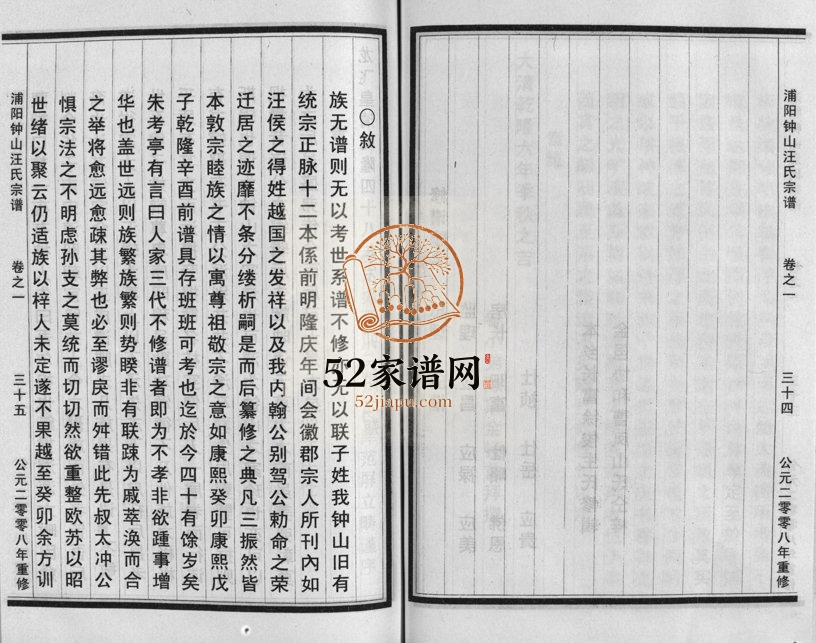 浦阳钟山汪氏宗谱 卷之一 三十四 公元二零零八年重修
〇敘
族无谱则无以考世系谱不修亦无以联子姓我钟山旧有
统宗正脉十二本係前明隆庆年间会徽郡宗人所刊內如
汪侯之得姓越国之发祥以及我内翰公别驾公勅命之荣
迁居之迹靡不条分缕析嗣是而后纂修之典凡三振然皆
本敦宗睦族之情以寓尊祖敬宗之意如康熙癸卯康熙戊
子乾隆辛酉前谱具存班班可考也迄於今四十有馀岁矣
朱考亭有言曰人家三代不修谱者即为不孝非欲踵事增
华也盖世远则族繁族繁则势暌非有联踈为戚萃涣而合
之举将愈远愈疎其弊也必至谬戾而舛错此先叔太冲公
惧宗法之不明虑孙支之莫统而切切然欲重整欧苏以昭
世绪以聚云仍适族以梓人未定遂不果越至癸卯余方训
浦阳钟山汪氏宗谱 卷之一 三十五 公元二零零八年重修
52家谱网
52jiapu.com